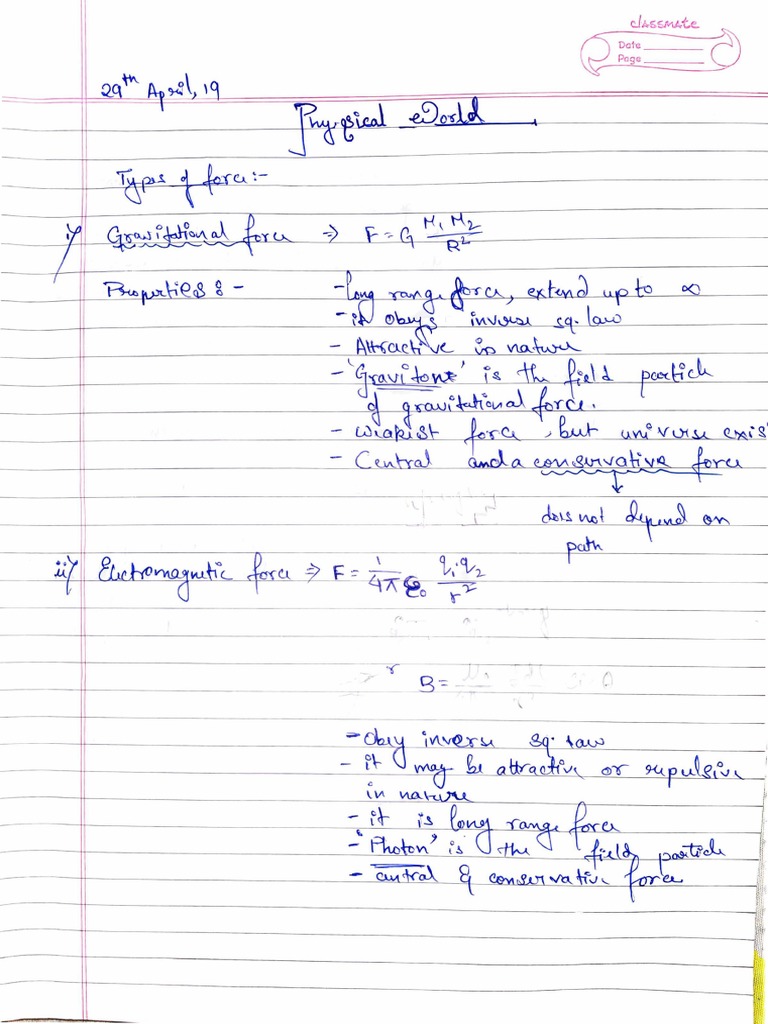 classmate
Date
Page
29th April, 19
Physical World
Types of force:-
i) Gravitational force ⇒ F = G M1 M2 / R²
Properties :- - long range force, extend up to ∞
- it obeys inverse sq. law
- Attractive in nature
- 'Graviton' is the field particle
of gravitational force.
- weakest force, but universe exis
- Central and a conservative force
↓
does not depend on
path
ii) Electromagnetic force ⇒ F = 1/4πε₀ q1.q2 / r²
B =
- Obey inverse sq. law
- it may be attractive or repulsive
in nature
- it is long range force
- 'Photon' is the field particle
- central & conservative force